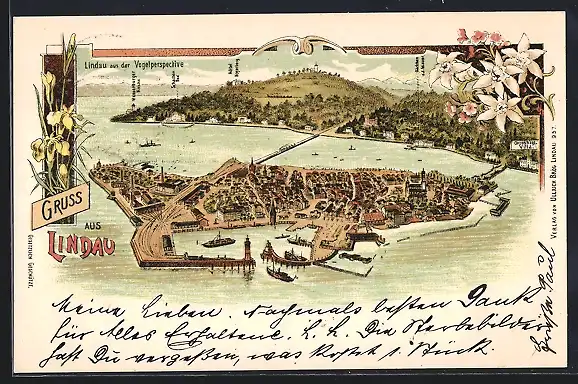 Lindau aus der Vogelperspektive
GRUSS
AUS
LINDAU
Gesetzlich Geschützt.
VERLAG VON ULLRICH BRÖG LINDAU 937.
Meine Lieben. Nochmals besten Dank
für Alles Erhaltene. L. L. Die Sterbebilder
hast Du vergeßen, was kostet 1. Stück